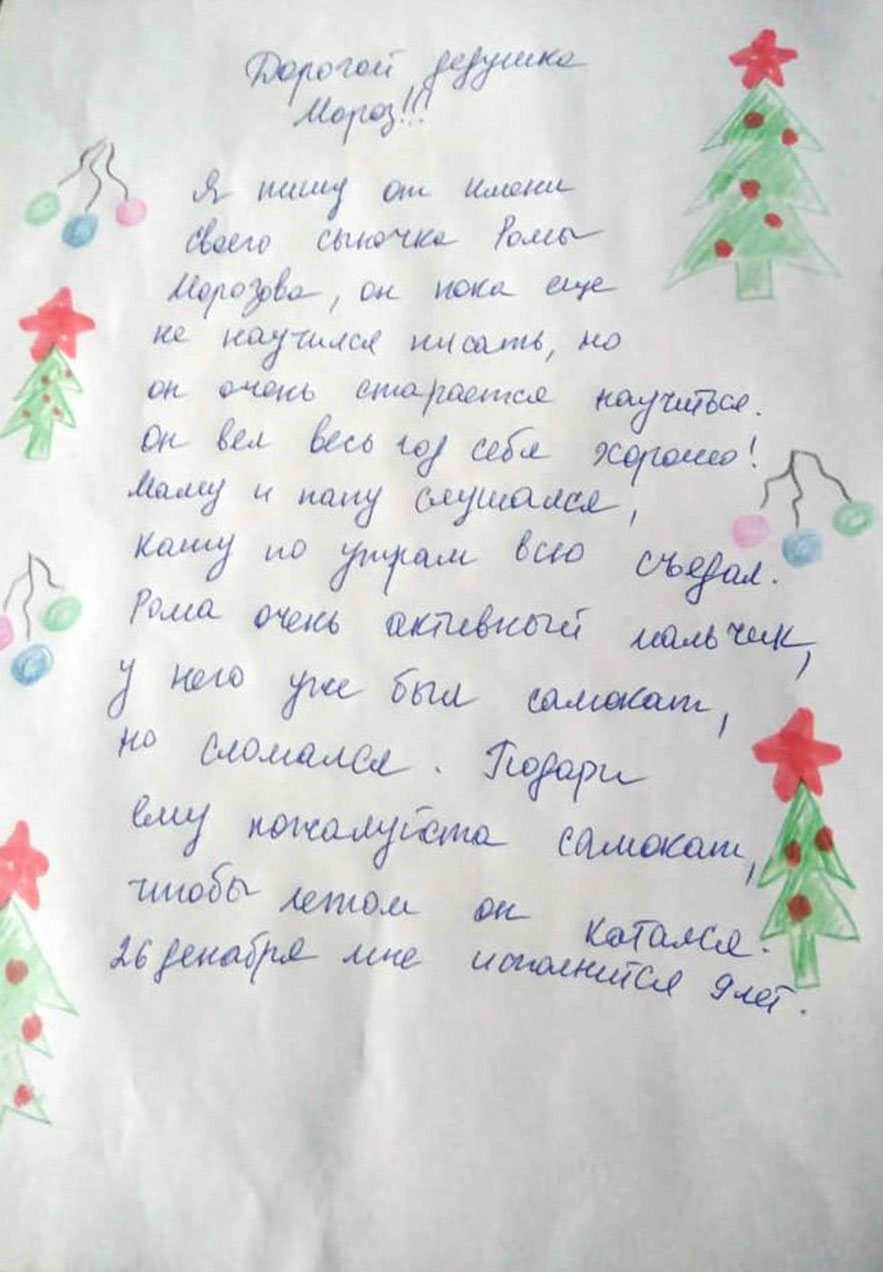 Дорогой дедушка
Мороз!!!
Я пишу от имени
своего сыночка Ромы
Морозова, он пока еще
не научился писать, но
он очень старается научиться.
он вел весь год себя хорошо!
Маму и папу слушался,
кашу по утрам всю съедал.
Рома очень активный мальчик,
у него уже был самокат,
но сломался. Подари
ему пожалуйста самокат,
чтобы летом он катался.
26 декабря мне исполнится 9 лет.